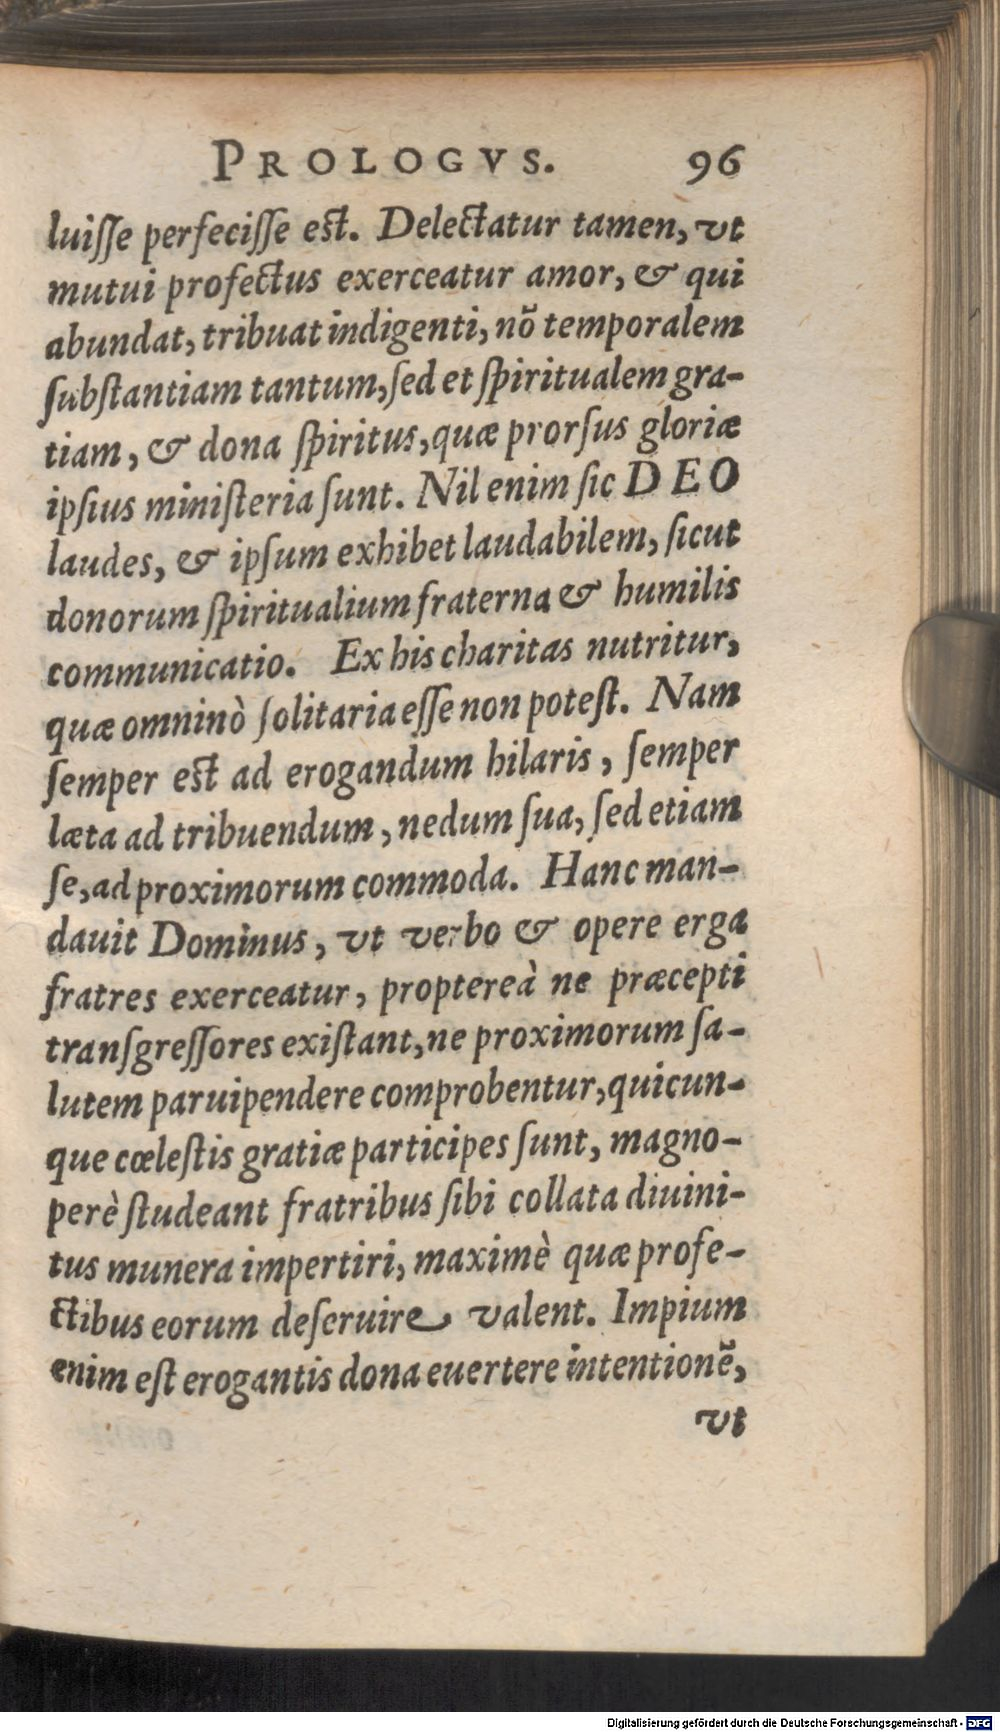 PROLOGVS. 96
luiſſe perfeciſſe eſt. Delectatur tamen, vt
mutui profectus exerceatur amor, & qui
abundat, tribuat indigenti, nõ temporalem
ſubſtantiam tantum, ſed et ſpiritualem gra-
tiam, & dona ſpiritus, quæ prorſus gloriæ
ipſius miniſteria ſunt. Nil enim ſic DEO
laudes, & ipſum exhibet laudabilem, ſicut
donorum ſpiritualium fraterna & humilis
communicatio. Ex his charitas nutritur,
quæ omninò ſolitaria eſſe non poteſt. Nam
ſemper eſt ad erogandum hilaris, ſemper
læta ad tribuendum, nedum ſua, ſed etiam
ſe, ad proximorum commoda. Hanc man-
dauit Dominus, vt verbo & opere erga
fratres exerceatur, proptereà ne præcepti
tranſgreſſores exiſtant, ne proximorum ſa-
lutem paruipendere comprobentur, quicun-
que cœleſtis gratiæ participes ſunt, magno-
perè ſtudeant fratribus ſibi collata diuini-
tus munera impertiri, maximè quæ profe-
ctibus eorum deſeruire valent. Impium
enim eſt erogantis dona euertere intentionẽ,
vt
Digitalisierung gefördert durch die Deutsche Forschungsgemeinschaft - DFG